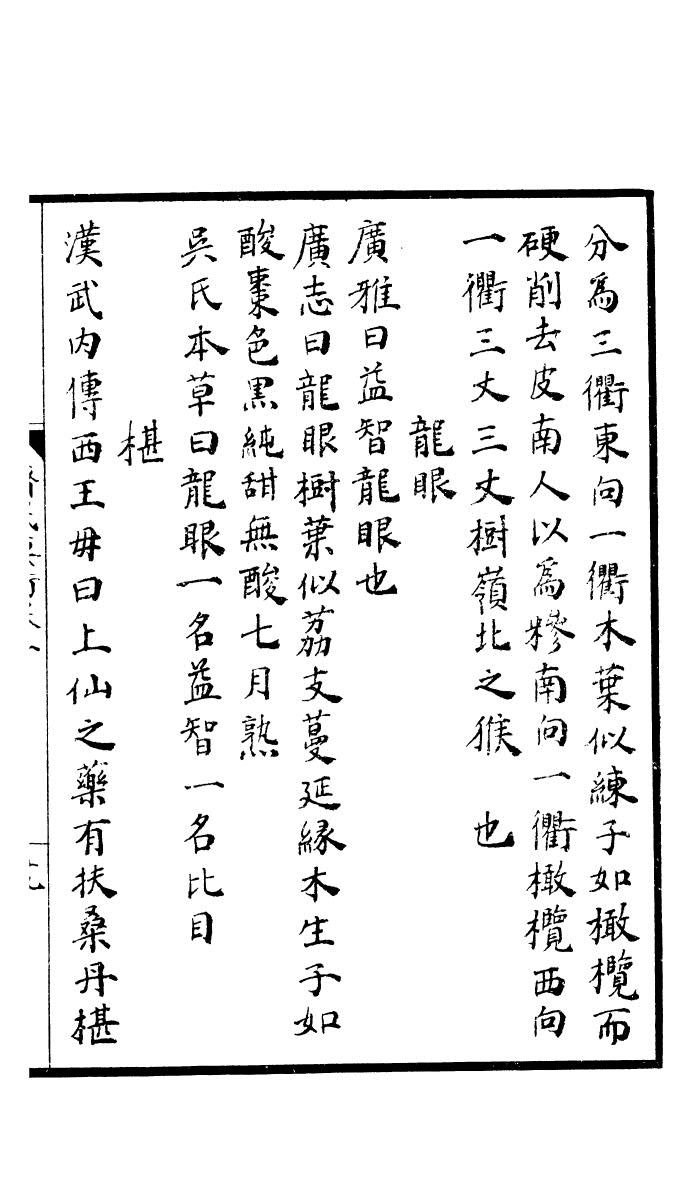 分爲三衢東向一衢木葉似練子如橄欖而
硬削去皮南人以爲糝南向一衢橄欖西向
一衢三丈三丈樹嶺北之猴　也
龍眼
廣雅曰益智龍眼也
廣志曰龍眼樹葉似荔支蔓延緣木生子如
酸棗色黑純甜無酸七月熟
吳氏本草曰龍眼一名益智一名比目
椹
漢武內傳西王毋曰上仙之藥有扶桑丹椹